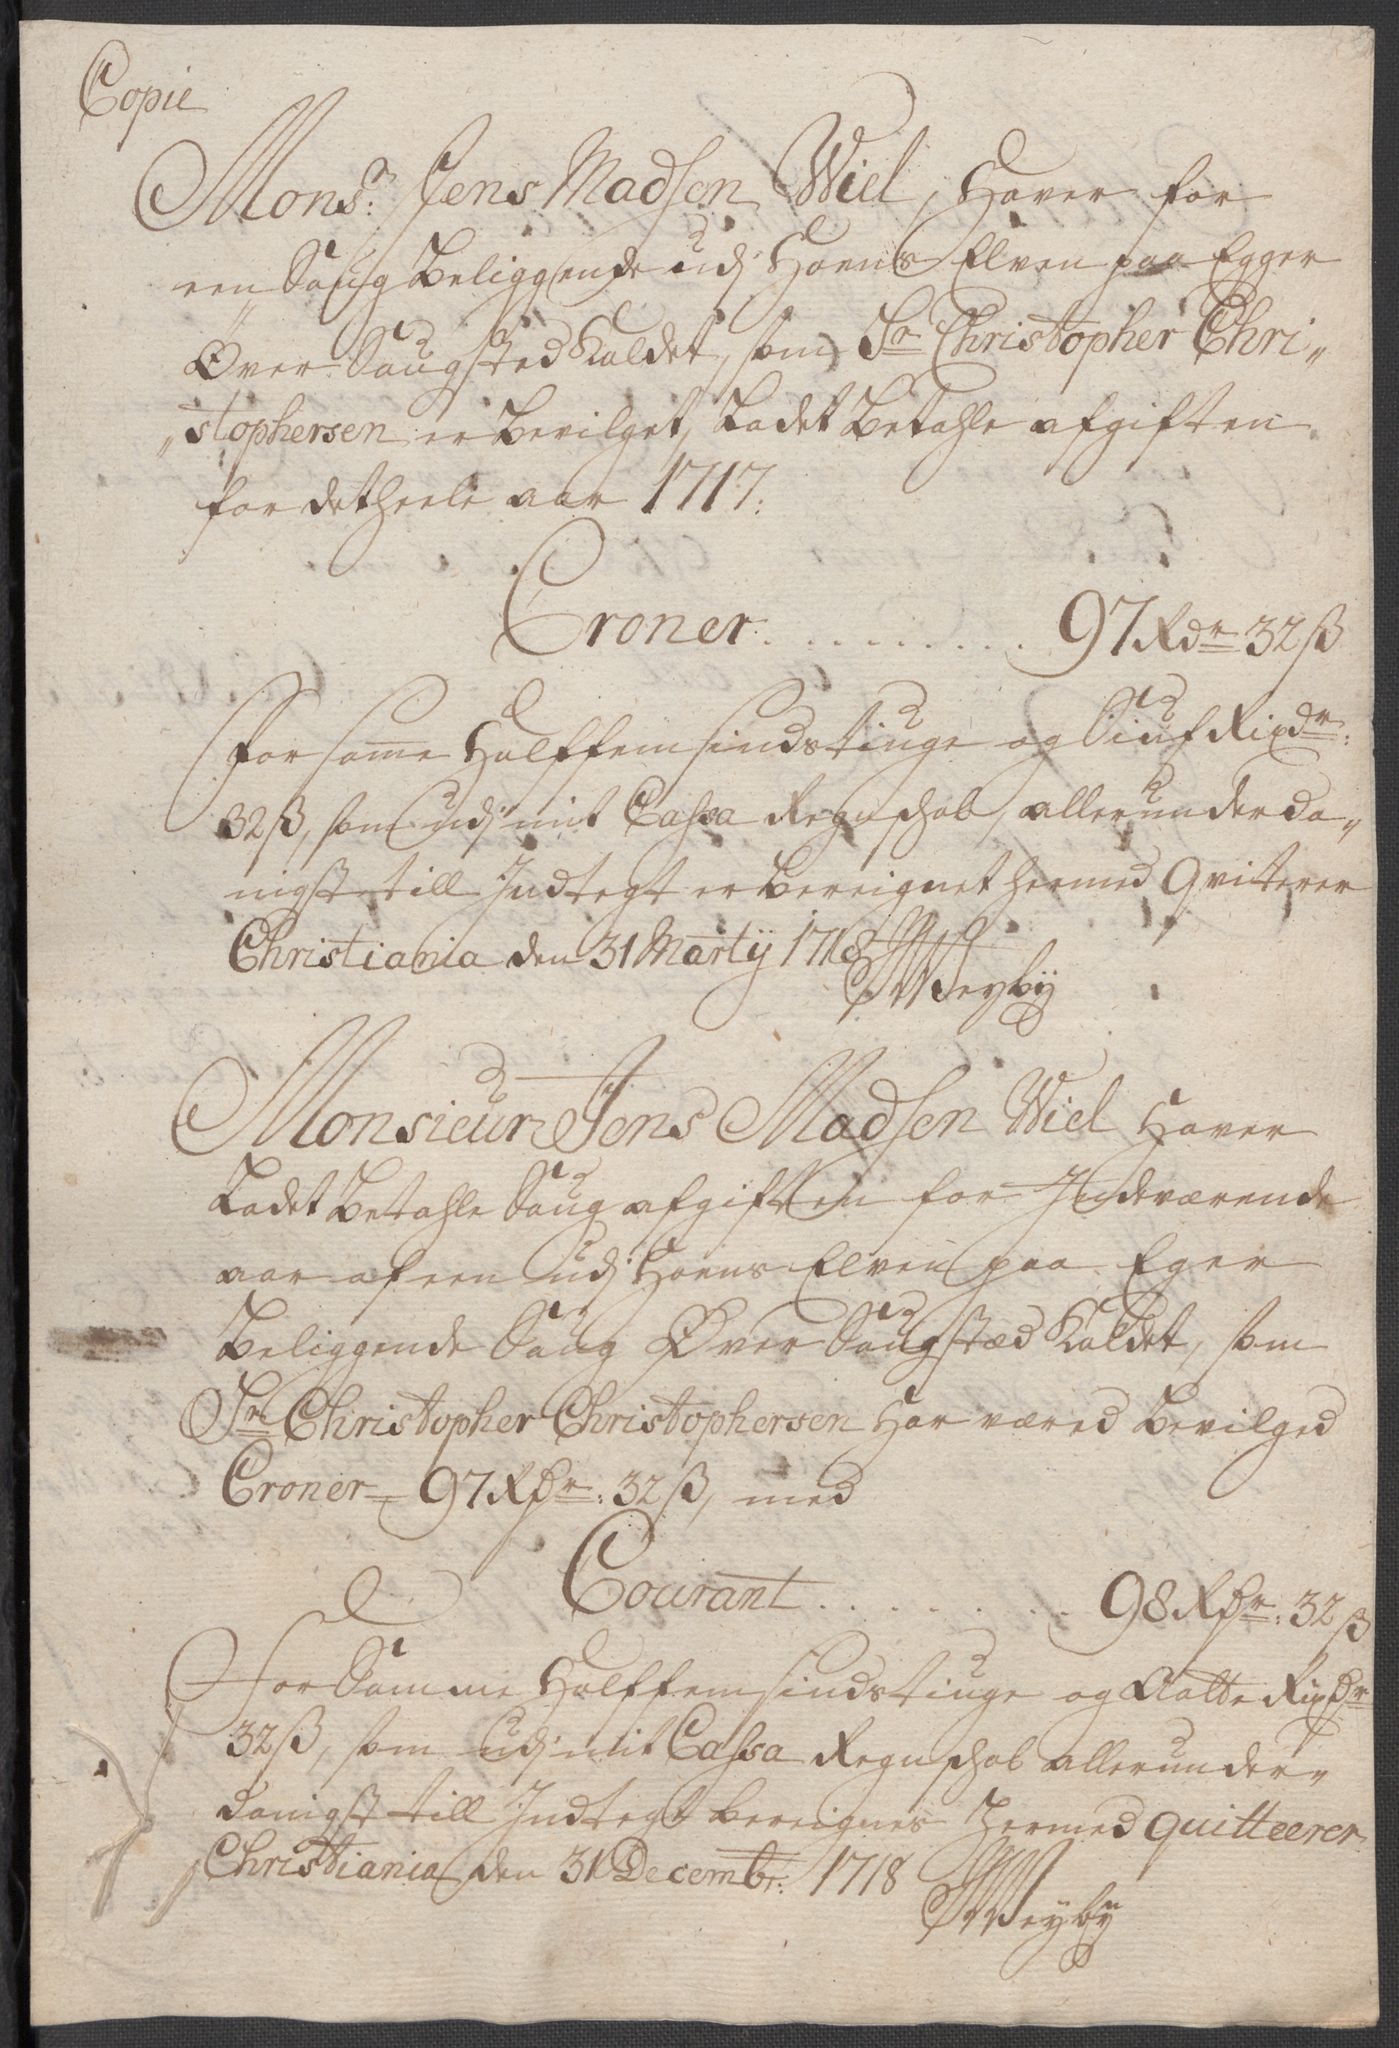 Copie
Mons:r Jens Madsen Wiel, Haver for
een Saug beliggende udj Hoens Elven paa Egger
Øver Saugsted kaldet, som Sr Christopher Chri„
„stophersen er bevilget, Ladet betahle afgiften
for det heele aar 1717:
Croner . . . . . . . . . 97 Rdr 32 ß
for samme Halffemsindstiuge og Siuf Rixdr:
32 ß, som udj mit Cassa Regnschab, allerunderda„
nigst till Indtegt er bereignet hermed Qviterer
Christiania den 31 Martij 1718
Weyby
Monsieur Jens Madsen Wiel Haver
Ladet betahle Saug afgiften for Indeværende
aar af een udj Hoens Elven paa Eger
beliggende Saug Øver Saugstæd kaldet, som
Sr Christopher Christophersen har været bevilged
Croner 97 Rdr: 32 ß, med
Courant . . . . . . . . 98 Rdr: 32 ß
For Samme Halffemsindstiuge og Aatte Rixdr
32 ß, som udj mit Cassa Regnschab allerunder„
danigst till Indtegt bereignes Hermed quitteerer
Christiania den 31 Decembr: 1718
Weyby